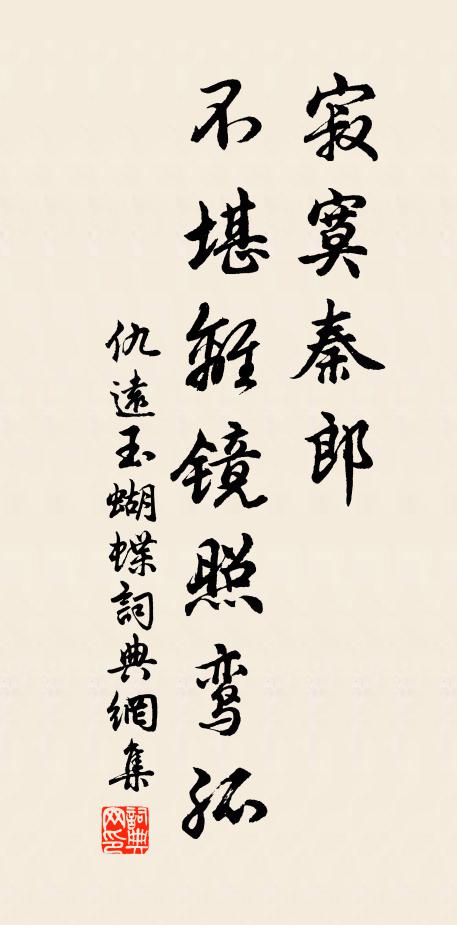 寂寞秦郎
不堪離镜照鸾孤
仇遠玉蝴蝶詞典網集
詞典
网印